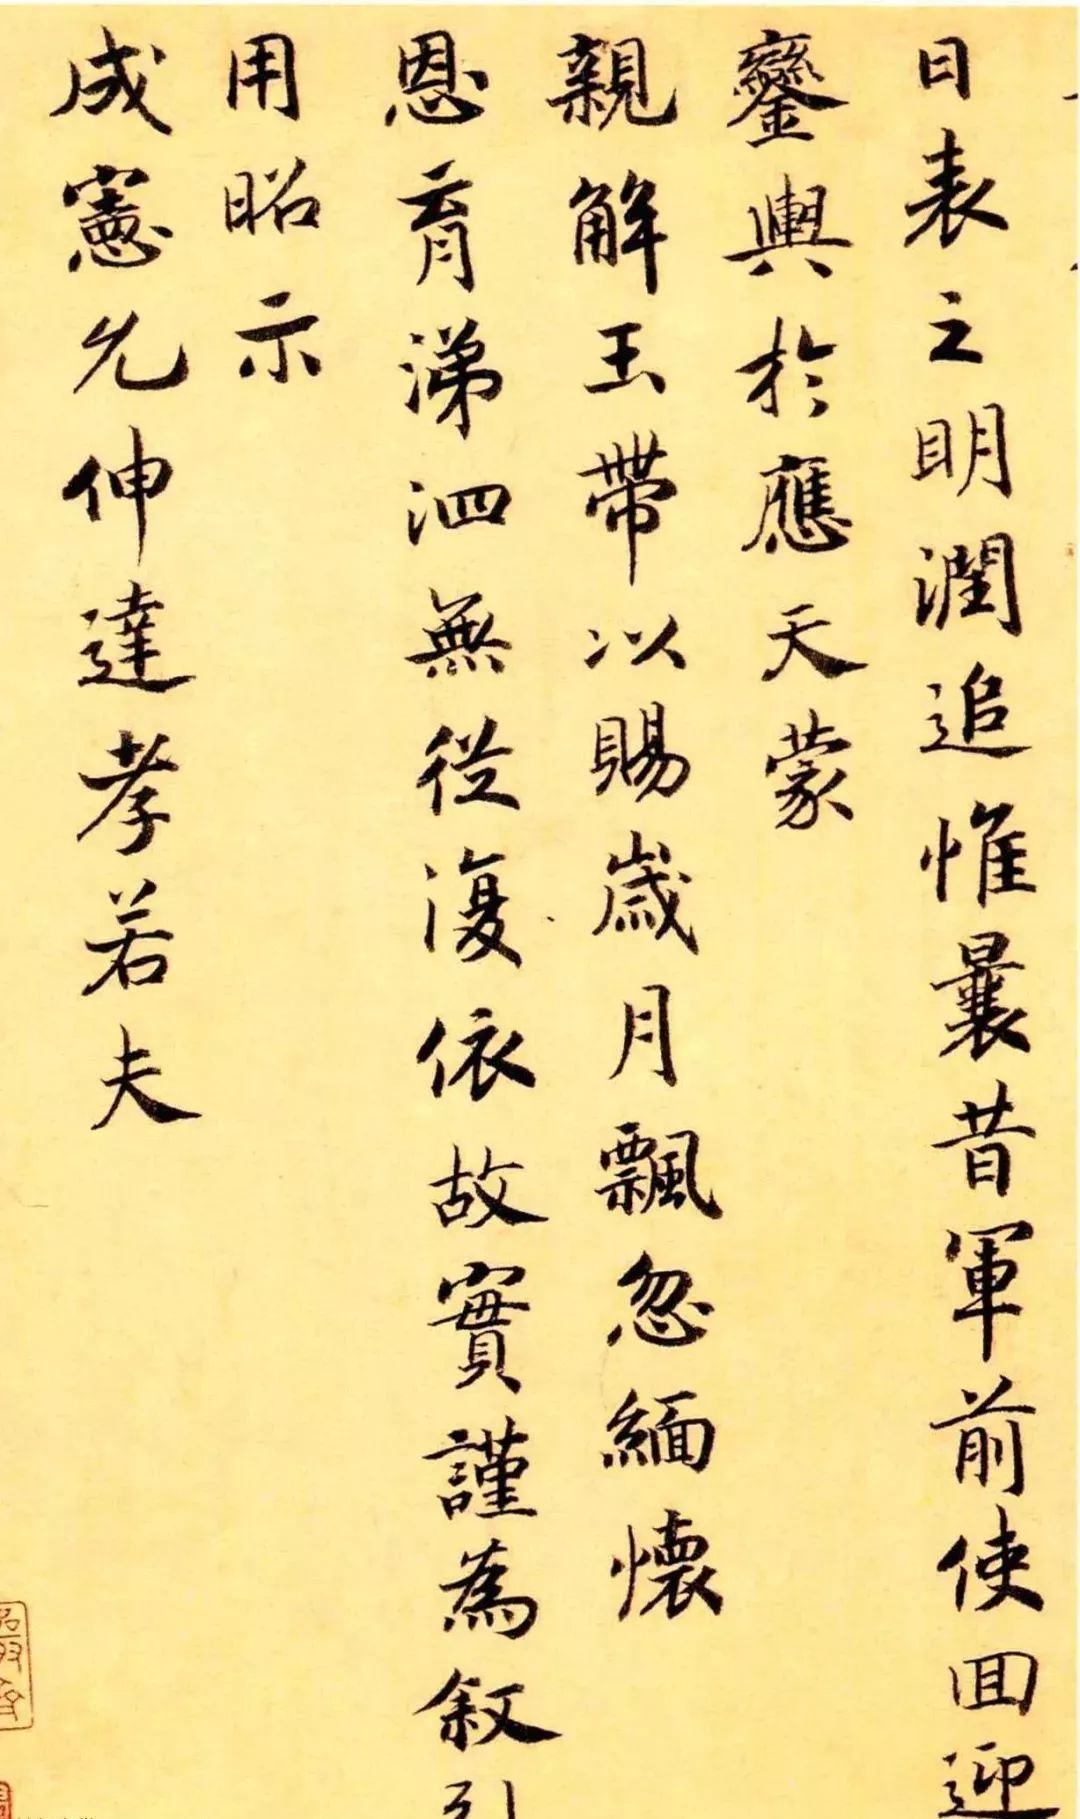 日表之明潤追惟曩昔軍前使回迎
鑾輿於應天蒙
親解玉帶以賜歲月飄忽緬懷
恩育涕泗無從復依故實謹為叙引
用昭示
成憲允伸達孝若夫